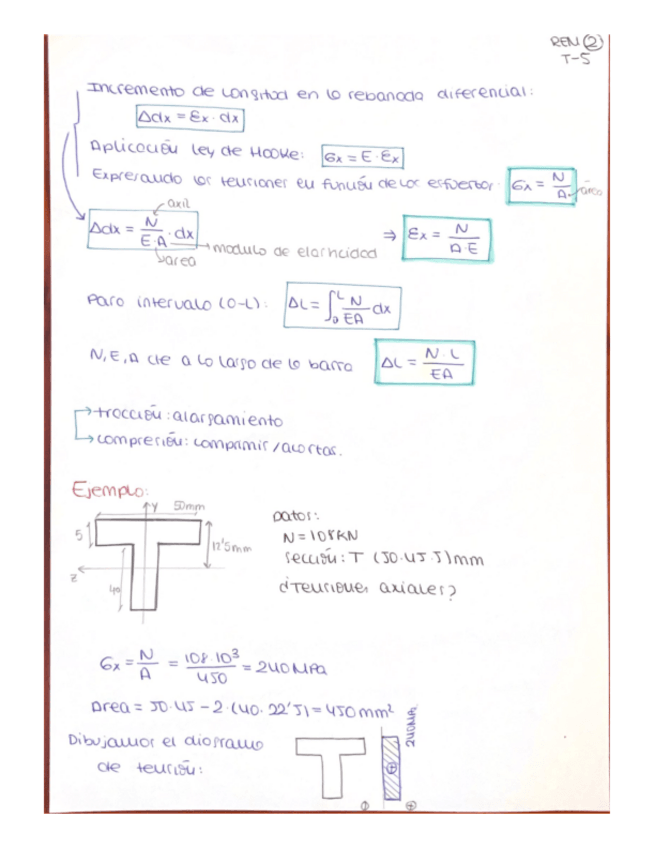 REM ②
T-5
Incremento de longitud en la rebanada diferencial:
Δdx = Ɛx · dx
Aplicación ley de Hooke: σx = E · Ɛx
Expresando las tensiones en función de los esfuerzos: σx = N/A área
axil
Δdx = N/(E·A) · dx ⇒ Ɛx = N/(A·E)
módulo de elasticidad
área
Para intervalo (0-L): ΔL = ∫₀ᴸ N/(EA) dx
N, E, A cte a lo largo de la barra ΔL = N·L/(EA)
tracción: alargamiento
compresión: comprimir/acortas.
Ejemplo:
y 50mm
5
12'5mm
z
40
Datos:
N = 108KN
Sección: T (50·45·5)mm
¿Tensiones axiales?
σx = N/A = 108·10³/450 = 240MPa
Area = 50·45 - 2·(40·22'5) = 450mm²
Dibujamos el diagrama
de tensión:
240MPa
⊕
⊕